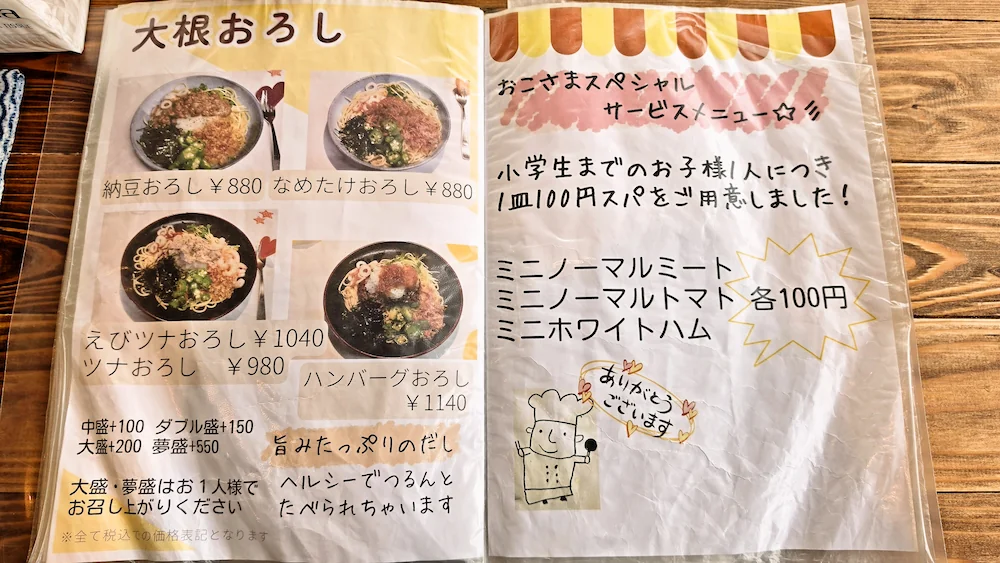 大根おろし
納豆おろし ¥880
なめたけおろし ¥880
えびツナおろし ¥1040
ツナおろし ¥980
ハンバーグおろし
¥1140
中盛+100 ダブル盛+150
大盛+200 夢盛+550
大盛・夢盛はお1人様で
お召し上がりください
※全て税込での価格表記となります
旨みたっぷりのだし
ヘルシーでつるんと
たべられちゃいます
おこさまスペシャル
サービスメニュー☆
小学生までのお子様1人につき
1皿100円スパをご用意しました!
ミニノーマルミート
ミニノーマルトマト 各100円
ミニホワイトハム
ありがとう
ございます